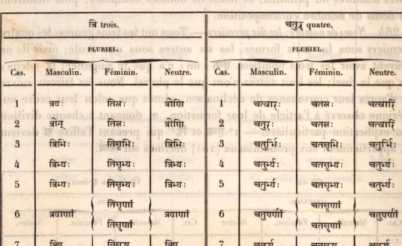 त्रि trois. चतुर् quatre.
PLURIEL. PLURIEL.
Cas. Masculin. Féminin. Neutre. Cas. Masculin. Féminin. Neutre.
1 त्रयः तिस्रः त्रीणि 1 चत्वारः चतस्रः चत्वारि
2 त्रीन् तिस्रः त्रीणि 2 चतुरः चतस्रः चत्वारि
3 त्रिभिः तिसृभिः त्रिभिः 3 चतुर्भिः चतसृभिः चतुर्भिः
4 त्रिभ्यः तिसृभ्यः त्रिभ्यः 4 चतुर्भ्यः चतसृभ्यः चतुर्भ्यः
5 त्रिभ्यः तिसृभ्यः त्रिभ्यः 5 चतुर्भ्यः चतसृभ्यः चतुर्भ्यः
तिसृणां चतसृणां
6 त्रयाणां त्रयाणां 6 चतुर्णां चतुर्णां
तिसॄणां चतसॄणां
7 7